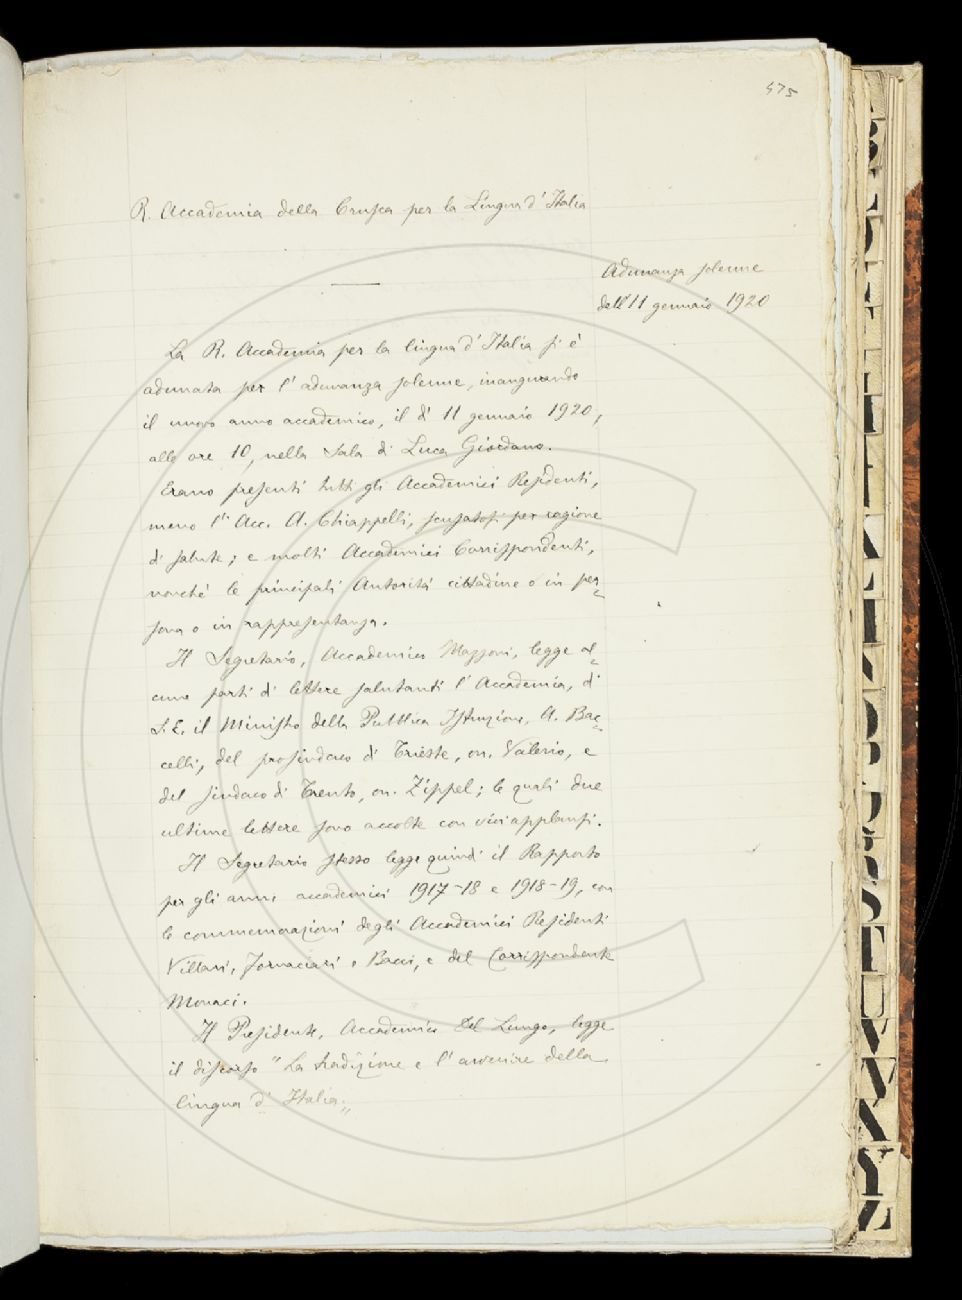 475
R. Accademia della Crusca per la Lingua d'Italia
Adunanza solenne
dell'11 gennaio 1920
La R. Accademia per la lingua d'Italia si è
adunata per l'adunanza solenne, inaugurando
il nuovo anno accademico, il dì 11 gennaio 1920,
alle ore 10, nella Sala di Luca Giordano.
Erano presenti tutti gli Accademici Residenti,
meno l'Acc. A. Chiappelli, scusatosi per ragione
di salute; e molti Accademici Corrispondenti,
nonché le principali Autorità cittadine o in per
sona o in rappresentanza.
Il Segretario, Accademico Mazzoni, legge al
cune parti di lettere salutanti l'Accademia, di
S. E. il Ministro della Pubblica Istruzione, A. Bac
celli, del prosindaco di Trieste, on. Valerio, e
del sindaco di Trento, on. Zippel; le quali due
ultime lettere sono accolte con vivi applausi.
Il Segretario stesso legge quindi il Rapporto
per gli anni accademici 1917-18 e 1918-19, con
le commemorazioni degli Accademici Residenti
Villari, Fornaciari e Bacci, e del Corrispondente
Monaci.
Il Presidente, Accademico Del Lungo, legge
il discorso "La tradizione e l'avvenire della
lingua d'Italia."
A
B
C
D
E
F
G
H
I
K
L
M
N
O
P
Q
R
S
T
U
V
W
X
Y
Z